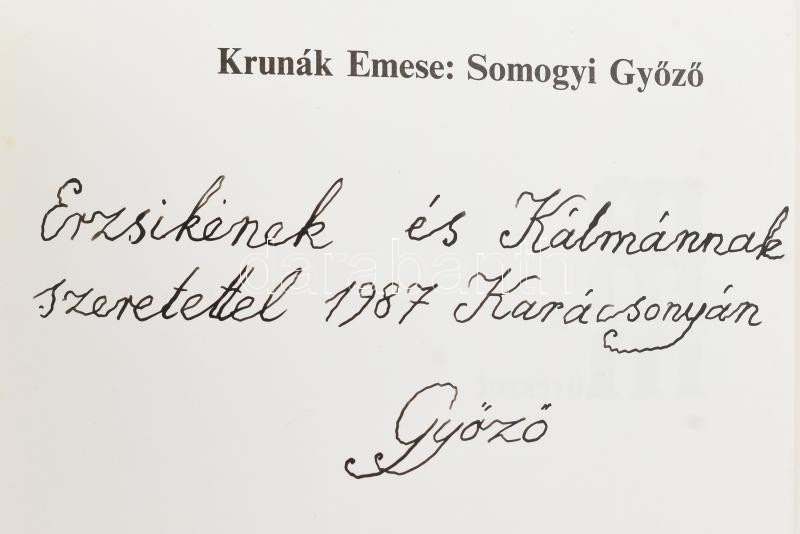 Krunák Emese: Somogyi Győző
Erzsikének és Kálmánnak
szeretettel 1987 Karácsonyán
Győző
darabanth